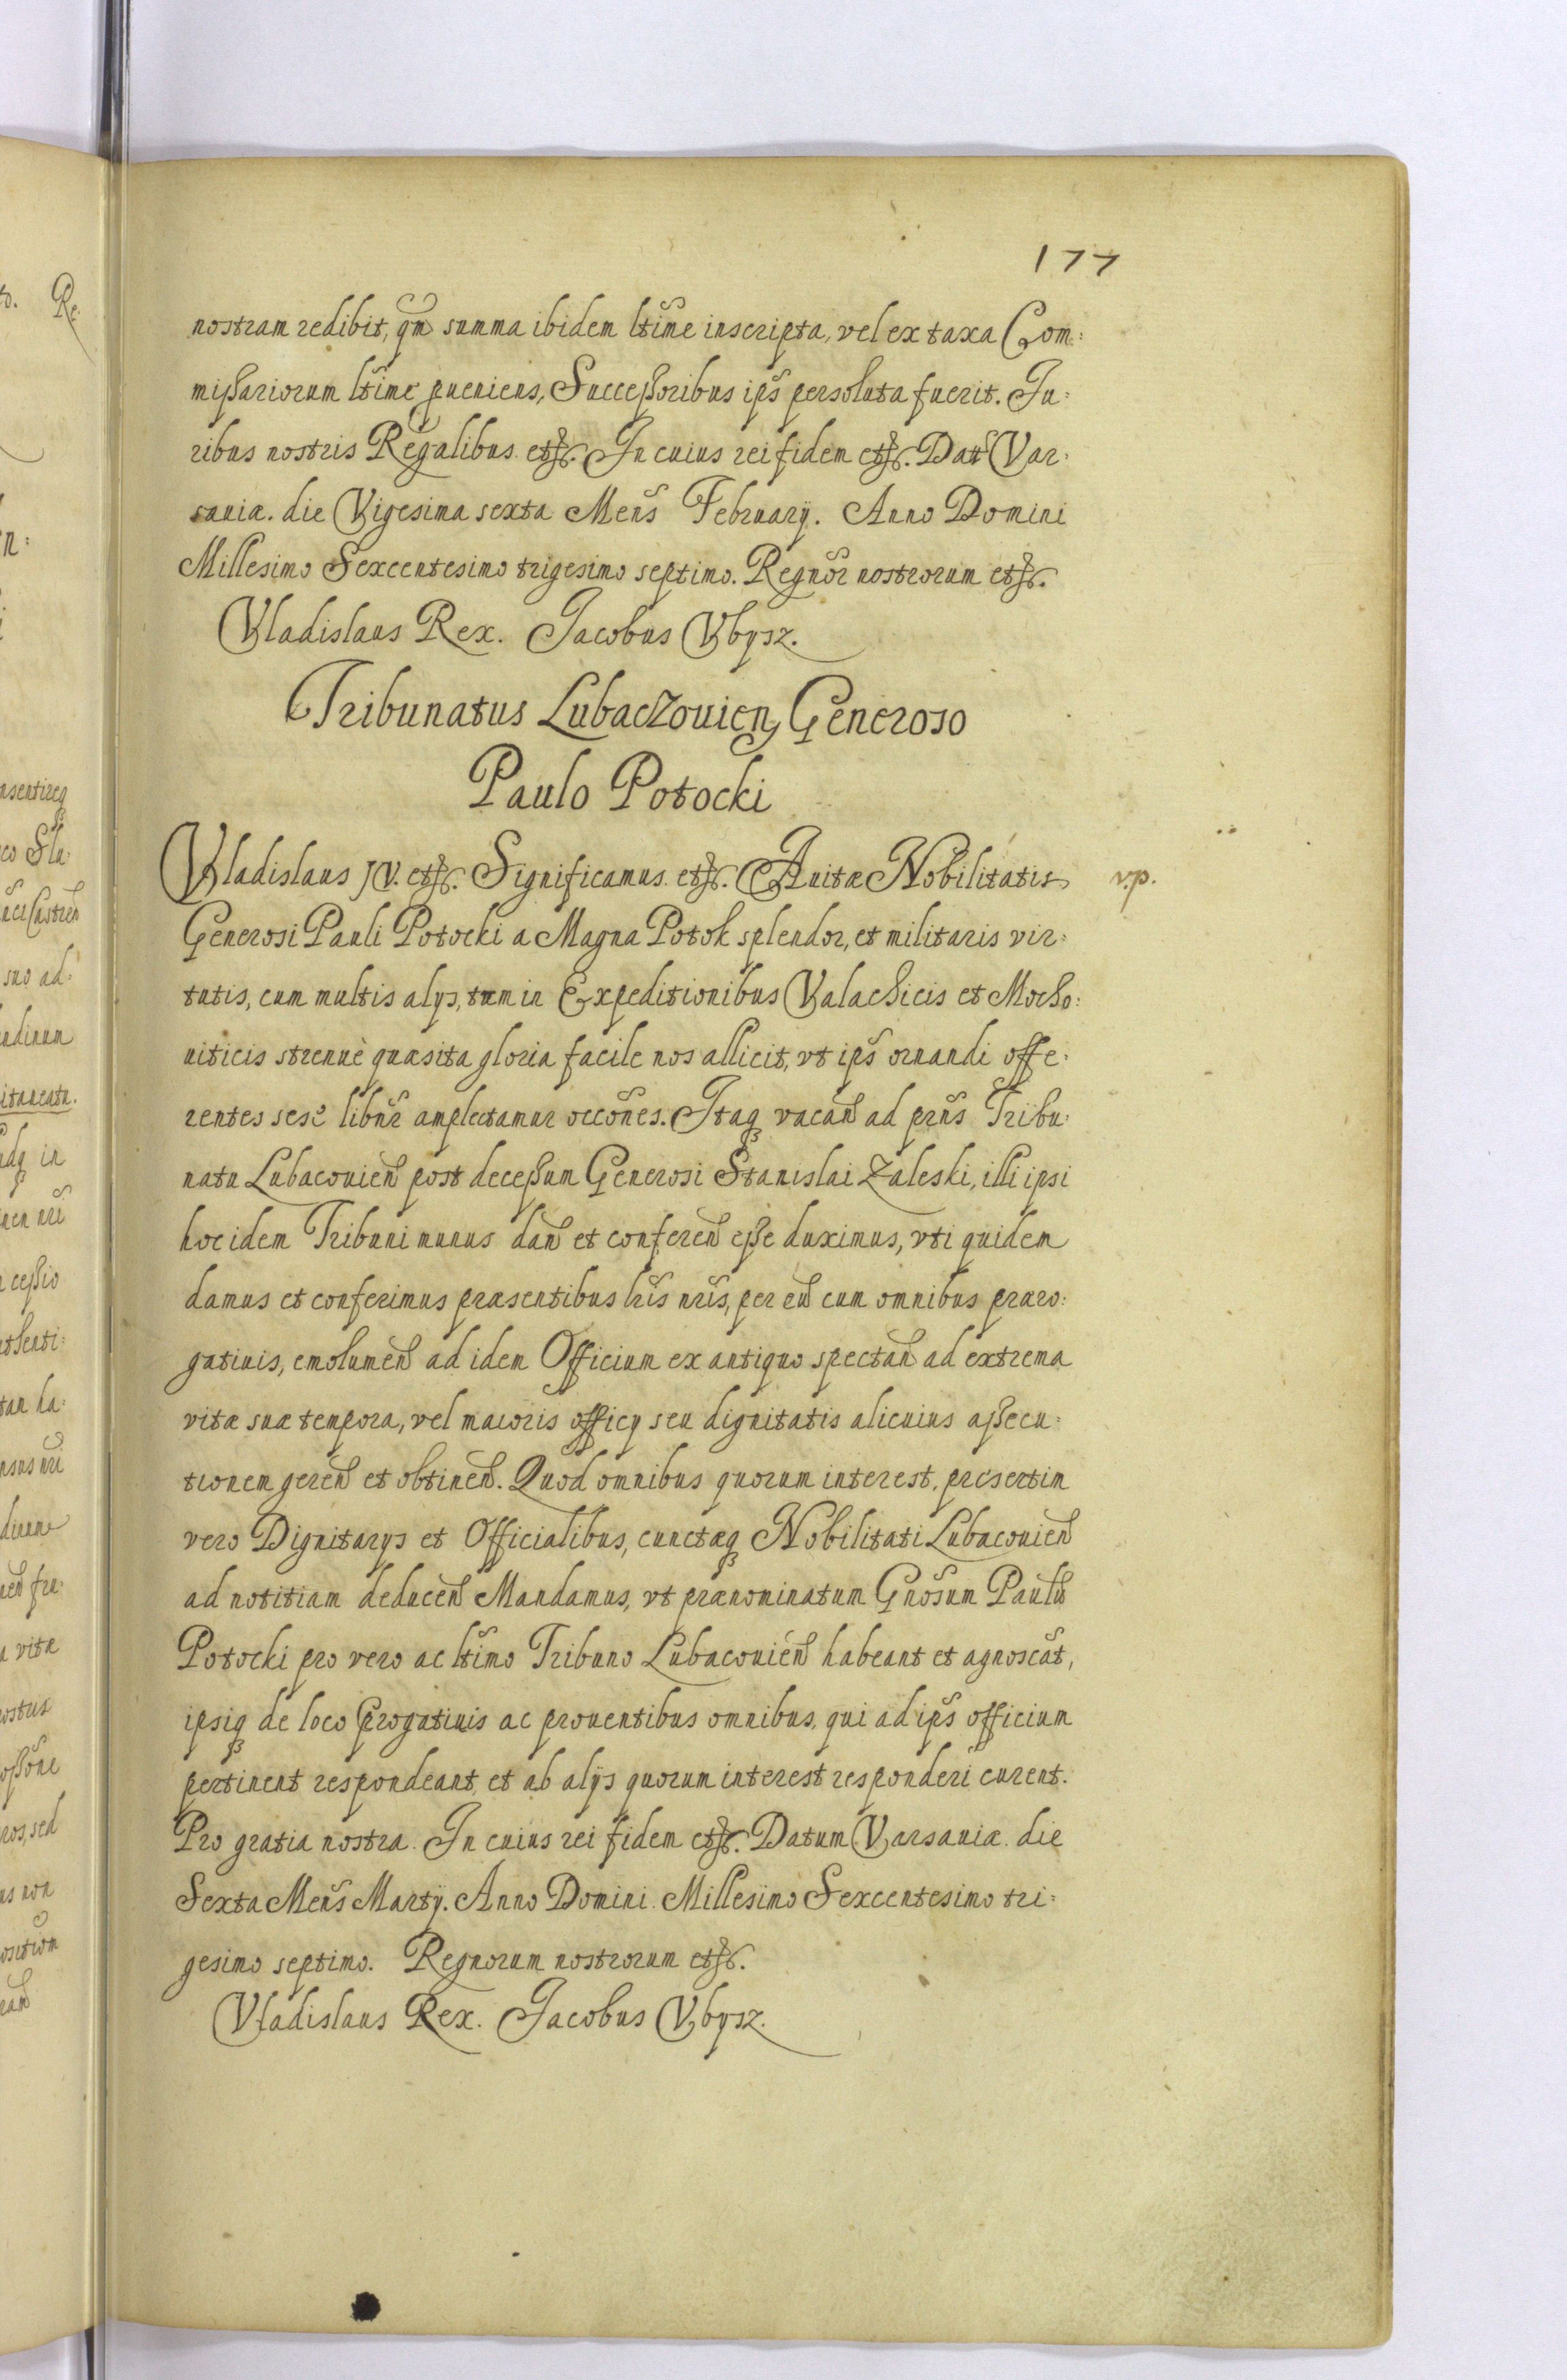 177
nostram redibit, qm̃ summa ibidem ltĩme inscripta, vel ex taxa Com:
mißariorum ltĩme pueniens, Succeßoribus ips̃ persoluta fuerit. Ju:
ribus nostris Regalibus etc. In cuius rei fidem etc. Datt Var:
sauiæ. die Vigesima sexta Mens̃ February. Anno Domini
Millesimo Sexcentesimo trigesimo septimo. Regnõr nostrorum etc.
Vladislaus Rex. Jacobus Vbysz.
Tribunatus Lubaczouien Generoso
Paulo Potocki
Vladislaus IV. etc. Significamus etc. Auitæ Nobilitatis
v.p.
Generosi Pauli Potocki a Magna Potok splendor, et militaris vir:
tutis, cum multis alys, tum in Expeditionibus Valachicis et Moscho:
uiticis strenuè quæsita gloria facile nos allicit, vt ips̃ ornandi offe:
rentes sese libñr amplectamur occõnes. Itaq vacañ ad prñs Tribu:
natu Lubacouieñ post deceßum Generosi Stanislai Zaleski, illi ipsi
hoc idem Tribuni munus dañ et confereñ eße duximus, vti quidem
damus et conferimus præsentibus lrĩs nrĩs, per eũ cum omnibus præro:
gatiuis, emolumeñ ad idem Officium ex antiquo spectañ ad extrema
vitæ suæ tempora, vel maioris officy seu dignitatis alicuius aßecu:
tionem gereñ et obtineñ. Quod omnibus quorum interest, presertim
vero Dignitarys et Officialibus, cunctæq Nobilitati Lubacouieñ
ad notitiam deduceñ Mandamus, vt prænominatum Gnõsum Paulũ
Potocki pro vero ac ltĩmo Tribuno Lubacouieñ habeant et agnoscãt,
ipsiq de loco progatiuis ac prouentibus omnibus, qui ad ips̃ officium
pertinent respondeant, et ab alijs quorum interest responderi curent.
Pro gratia nostra. In cuius rei fidem etc. Datum Varsauiæ. die
Sexta Mens̃ Martij. Anno Domini. Millesimo Sexcentesimo tri:
gesimo septimo. Regnorum nostrorum etc.
Vladislaus Rex. Jacobus Vbysz.